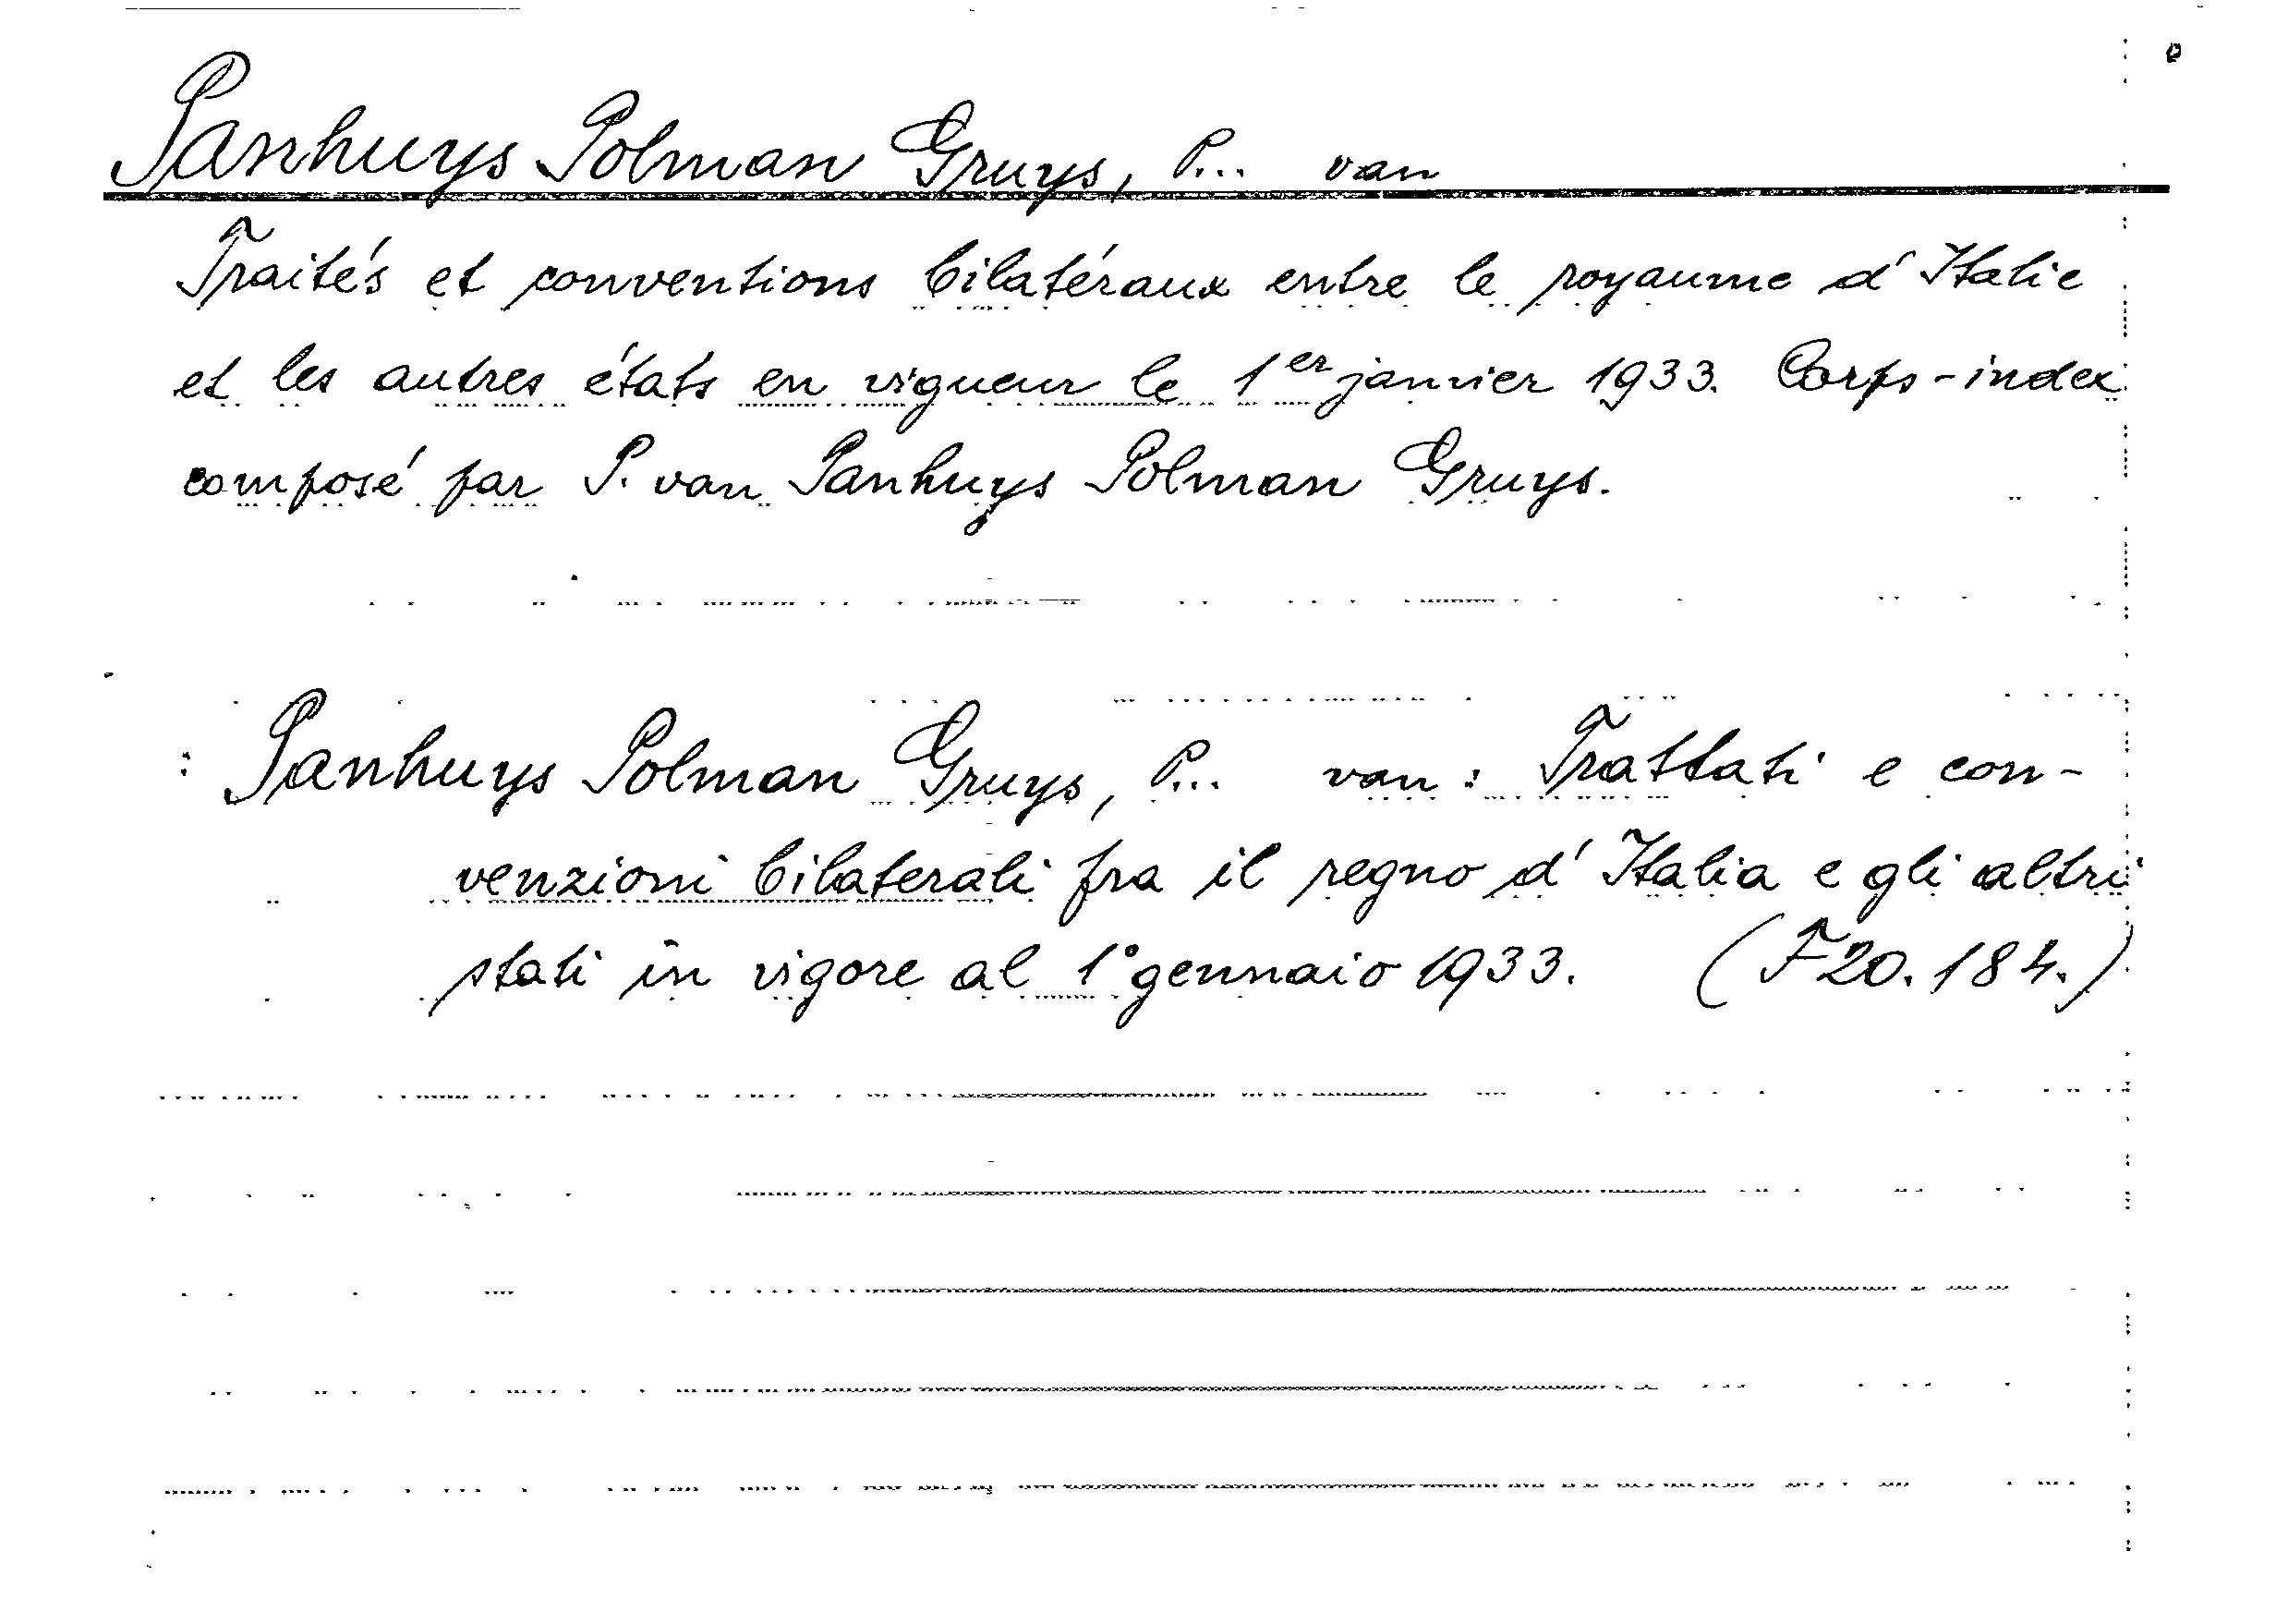 Panhuys Polman Gruys, P... van
Traités et conventions bilatéraux entre le royaume d'Italie
et les autres états en vigueur le 1er janvier 1933. Corps-index
composé par P. van Panhuys Polman Gruys.
: Panhuys Polman Gruys, P... van : Trattati e con-
venzioni bilaterali fra il regno d'Italia e gli altri
stati in vigore al 1° gennaio 1933. (F20.184.)